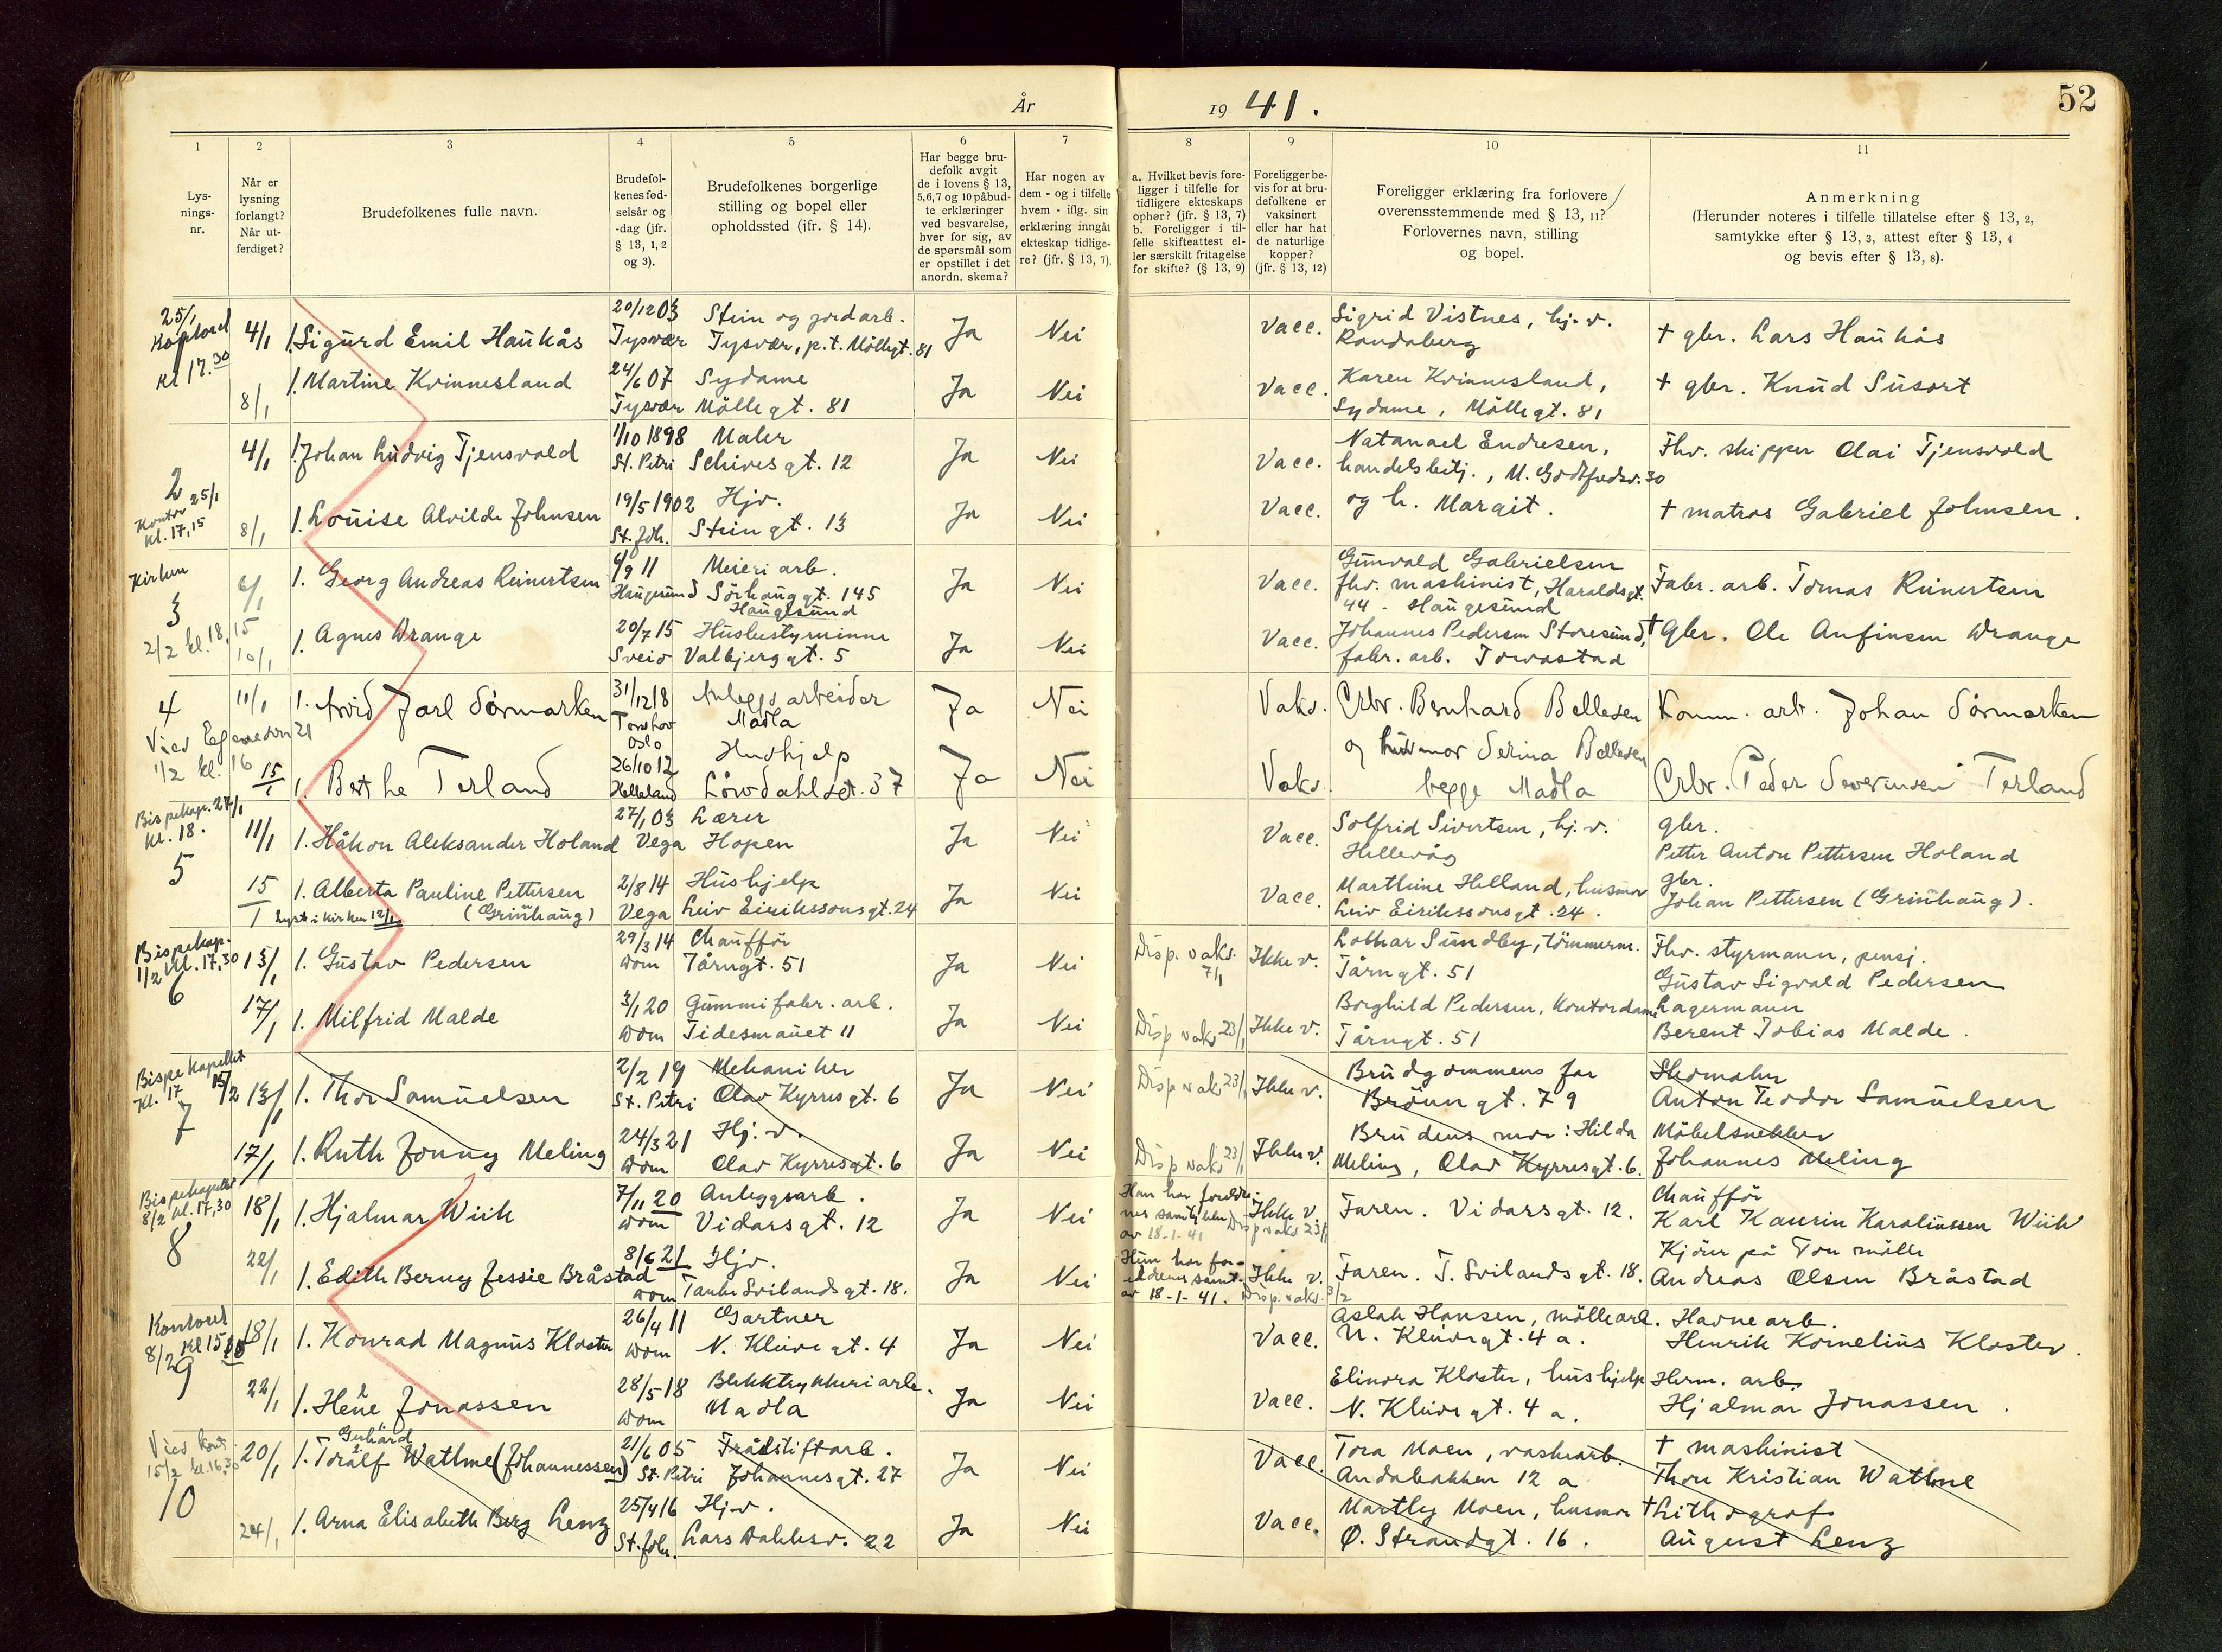 År 19 41. 52
1 2 3 4 5 6 7 8 9 10 11
Lysningsnr.
Når er lysning forlangt? Når utferdiget?
Brudefolkenes fulle navn.
Brudefolkenes fødselsår og -dag (jfr. § 13, 1, 2 og 3).
Brudefolkenes borgerlige stilling og bopel eller opholdssted (jfr. § 14).
Har begge brudefolk avgit de i lovens § 13, 5,6,7 og 10 påbudte erklæringer ved besvarelse, hver for sig, av de spørsmål som er opstillet i det anordn. skema?
Har nogen av dem - og i tilfelle hvem - iflg. sin erklæring inngåt ekteskap tidligere? (jfr. § 13, 7).
a. Hvilket bevis foreligger i tilfelle for tidligere ekteskaps ophør? (jfr. § 13, 7) b. Foreligger i tilfelle skifteattest eller særskilt fritagelse for skifte? (§ 13, 9)
Foreligger bevis for at brudefolkene er vaksinert eller har hat de naturlige kopper? (jfr. § 13, 12)
Foreligger erklæring fra forlovere overensstemmende med § 13, 11? Forlovernes navn, stilling og bopel.
Anmerkning (Herunder noteres i tilfelle tillatelse efter § 13, 2, samtykke efter § 13, 3, attest efter § 13, 4 og bevis efter § 13, 8).
25/1 Kontoret kl 17.30
1
4/1 1. Sigurd Emil Haukås 20/12 03 Tysvær Stein og jordarb. Tysvær, p.t. Møllegt. 81 Ja Nei Vacc. Sigrid Vistnes, hj. v. Randaberg † gbr. Lars Haukås
8/1 1. Martine Kvinnesland 24/6 07 Tysvær Sydame Møllegt. 81 Ja Nei Vacc. Karen Kvinnesland, Sydame, Møllegt. 81 † gbr. Knud Susort
2 Kontor 25/1 kl. 17,15
4/1 1. Johan Ludvig Tjensvold 1/10 1898 St. Petri Maler Schivesgt. 12 Ja Nei Vacc. Natanael Endresen, handelsbetj., M. Godtfredsv. 30 Fhv. skipper Olai Tjensvold
8/1 1. Louise Alvilde Johnsen 19/5 1902 St. Joh. Hjv. Steingt. 13 Ja Nei Vacc. og h. Margit. † matros Gabriel Johnsen.
Kirken 3 2/2 kl. 18,15
6/1 1. Georg Andreas Reinertsen 6/9 11 Haugesund Meieriarb. Sørhauggt. 145 Haugesund Ja Nei Vacc. Gunvald Gabrielsen fhv. maskinist, Haraldsgt. 44 - Haugesund Fabr. arb. Tomas Reinertsen
10/1 1. Agnes Drange 20/7 15 Sveio Husbestyrerinne Valbjerggt. 5 Ja Nei Vacc. Johannes Pedersen Storesund, fabr. arb. Torvastad † Gbr. Ole Anfinsen Drange
4 Vied Egenesvn 21 1/2 kl. 16
11/1 1. Arvid Jarl Sørmarken 31/12 18 Torshov Oslo Anleggsarbeider Madla Ja Nei Vaks. Gbr. Bernhard Bellesen Komm. arb. Johan Sørmarken
15/1 1. Berthe Terland 26/10 12 Helleland Hushjelp Løvdahlsgt. 37 Ja Nei Vaks. og husmor Serina Bellesen begge Madla Gbr. Peder Severinsen Terland
Bispekap. 27/1 kl. 18. 5
11/1 1. Håkon Aleksander Holand 27/1 03 Vega Lærer Hopen Ja Nei Vacc. Solfrid Sivertsen, hj. v. Hellevåg gbr. Petter Anton Pettersen Holand
15/1 1. Alberta Pauline Pettersen (Grinhaug) Lyst i kirken 12/1 2/8 14 Vega Hushjelp Leiv Eirikssonsgt. 24 Ja Nei Vacc. Marthine Helland, husmor Leiv Eirikssonsgt. 24. gbr. Johan Pettersen (Grinhaug).
Bispekap. 1/2 kl. 17,30 6
13/1 1. Gustav Pedersen 29/3 14 Dom Chauffør Tårngt. 51 Ja Nei Disp. vaks. 7/1 Ikke v. Lothar Sundby, tømmerm. Tårngt. 51 Fhv. styrmann, pensj. Gustav Sigvald Pedersen
17/1 1. Milfrid Malde 3/1 20 Dom Gummifabr. arb. Tidesmauet 11 Ja Nei Disp vaks 23/1 Ikke v. Borghild Pedersen, Kontordame Tårngt. 51 Lagermann Berent Tobias Malde.
Bispekapellet Kl. 17 15/2 7
13/1 1. Thor Samuelsen 2/2 19 St. Petri Mekaniker Olav Kyrresgt. 6 Ja Nei Disp vaks 23/1 Ikke v. Brudgommens far Brøungt. 79 Skomaker Anton Teodor Samuelsen
17/1 1. Ruth Jonny Meling 24/3 21 Dom Hj. v. Olav Kyrresgt. 6 Ja Nei Disp vaks 23/1 Ikke v. Brudens mor: Hilda Meling, Olav Kyrresgt. 6. Møbelsnekker Johannes Meling
Bispekapellet 8/2 kl. 17,30 8
18/1 1. Hjalmar Wiik 7/11 20 Dom Anleggsarb. Vidarsgt. 12 Ja Nei Han har foreldrenes samtykke av 18-1-41 Ikke v. Disp vaks 23/1 Faren. Vidarsgt. 12. Chauffør Karl Kaurin Karolinssen Wiik
22/1 1. Edith Berny Jessie Bråstad 8/6 21 Dom Hjv. Tanke Svilandsgt. 18. Ja Nei Hun har foreldrenes samt. av 18-1-41. Ikke v. Disp. vaks. 3/2 Faren. T. Svilandsgt. 18. Kjører på Tou mølle Andreas Olsen Bråstad
Kontoret 8/2 kl 15 9
18/1 1. Konrad Magnus Kloster 26/4 11 Dom Gartner N. Kleivegt. 4 Ja Nei Vacc. Aslak Hansen, møllearb. N. Kleivegt. 4 a. Havnearb. Henrik Kornelius Kloster.
22/1 1. Hene Jonassen 28/5 18 Dom Blikktrykkeriarb. Madla Ja Nei Vacc. Elinora Kloster, hushjelp N. Kleivegt. 4 a. Herm. arb. Hjalmar Jonassen.
Vied Kont. 15/2 kl. 16,30 10
20/1 1. Toralf Gerhard Wathne (Johannessen) 21/6 05 St. Petri Trådstiftarb. Johannesgt. 27 Ja Nei Vacc. Tora Moen, vaskearb. Andabakken 12 a † maskinist Thore Kristian Wathne
24/1 1. Arna Elisabeth Berg Lenz 25/4 16 St. Joh. Hj. v. Lars Dahlesv. 22 Ja Nei Vacc. Marthy Moen, husmor Ø. Strandgt. 16. † Lithograf August Lenz